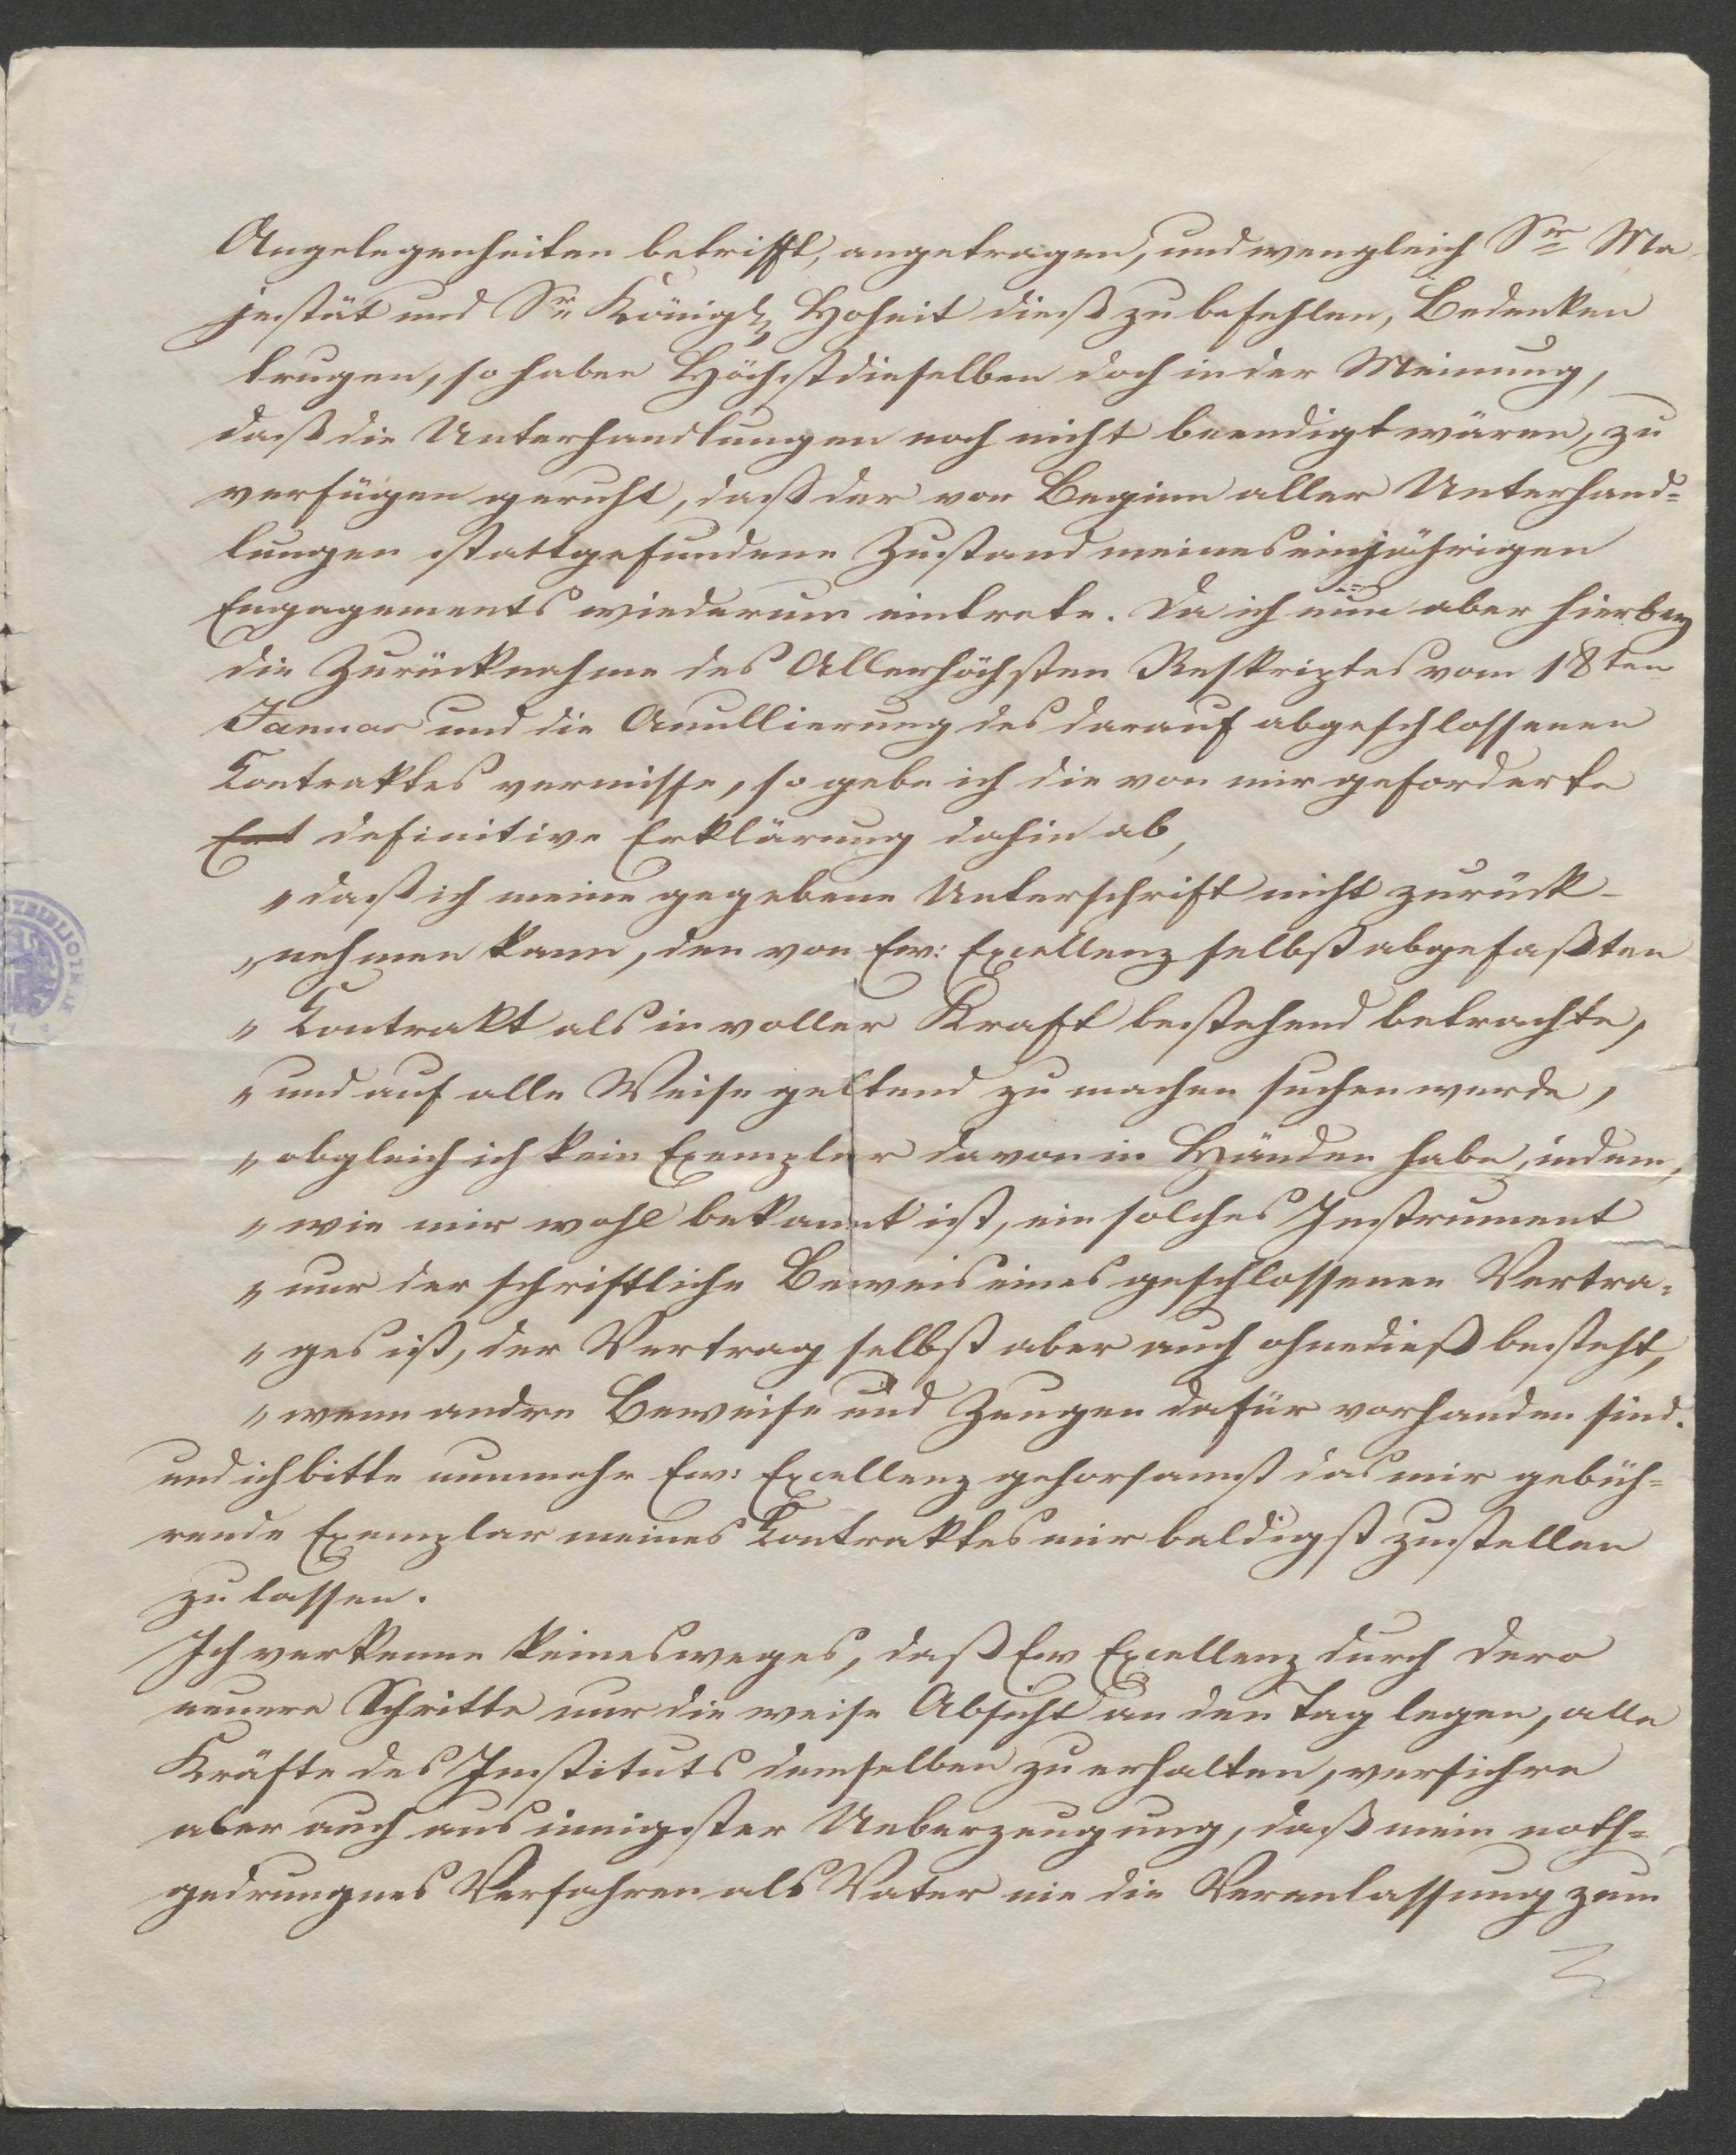 Angelegenheiten betrifft, angetragen, und wengleich Sr Ma-
jestät und Sr. Königl. Hoheit dieß zu befehlen, Bedenken
trugen, so haben Höchstdieselben doch in der Meinung,
daß die Unterhandlungen noch nicht beendigt wären, zu
verfügen geruht, daß der vor Beginn aller Unterhand=
lungen stattgefundene Zustand meines einjährigen
Engagements wiederum eintrete. Da ich nun aber hierbey
die Zurücknahme des Allerhöchsten Reskriptes vom 18ten
Januar und die Anullierung des darauf abgeschlossenen
Contraktes vermisse, so gebe ich die von mir geforderte
Ent definitive Erklärung dahin ab,
„daß ich meine gegebene Unterschrift nicht zurück-
„nehmen kann, den von Ew: Excellenz selbst abgefaßten
„Contrakt als in voller Kraft bestehend betrachte,
„und auf alle Weise geltend zu machen suchen werde,
„obgleich ich kein Exemplar davon in Händen habe, indem,
„wie mir wohl bekannt ist, ein solches Instrument
„nur der schriftliche Beweis eines geschlossenen Vertra-
„ges ist, der Vertrag selbst aber auch ohnedieß besteht,
„wenn andre Beweise und Zeugen dafür vorhanden sind.
und ich bitte nunmehr Ew: Excellenz gehorsamst das mir gebüh=
rende Exemplar meines Contraktes mir baldigst zustellen
zu lassen.
Ich verkenne keinesweges, daß Ew Excellenz durch dero
neuere Schritte nur die weise Absicht an den Tag legen, alle
Kräfte des Instituts demselben zu erhalten, versichre
aber auch aus innigster Ueberzeugung, daß mein noth=
gedrungnes Verfahren als Vater nie die Veranlassung zum